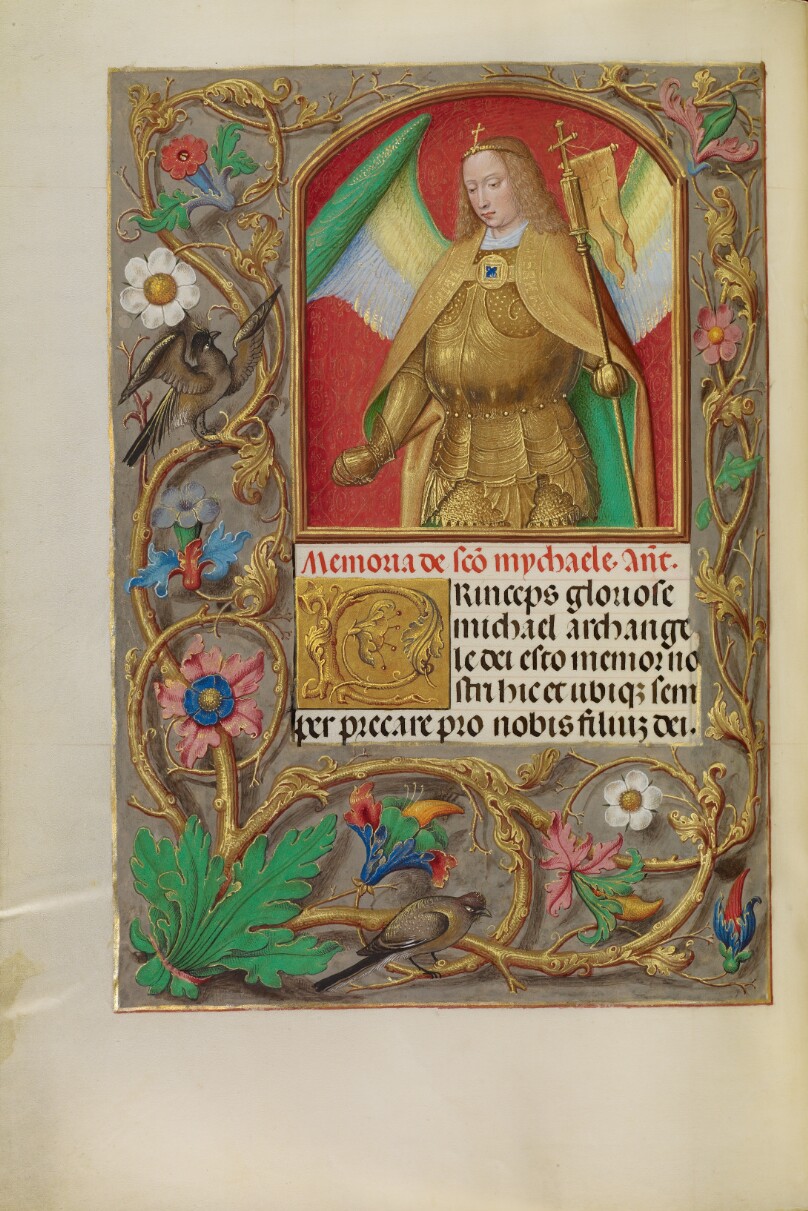 Memoria de scō mychaele. Añt.
PRinceps gloriose
michael archange
le dei esto memor no
stri hic et ubiqȝ sem
per precare pro nobis filiuȝ dei.